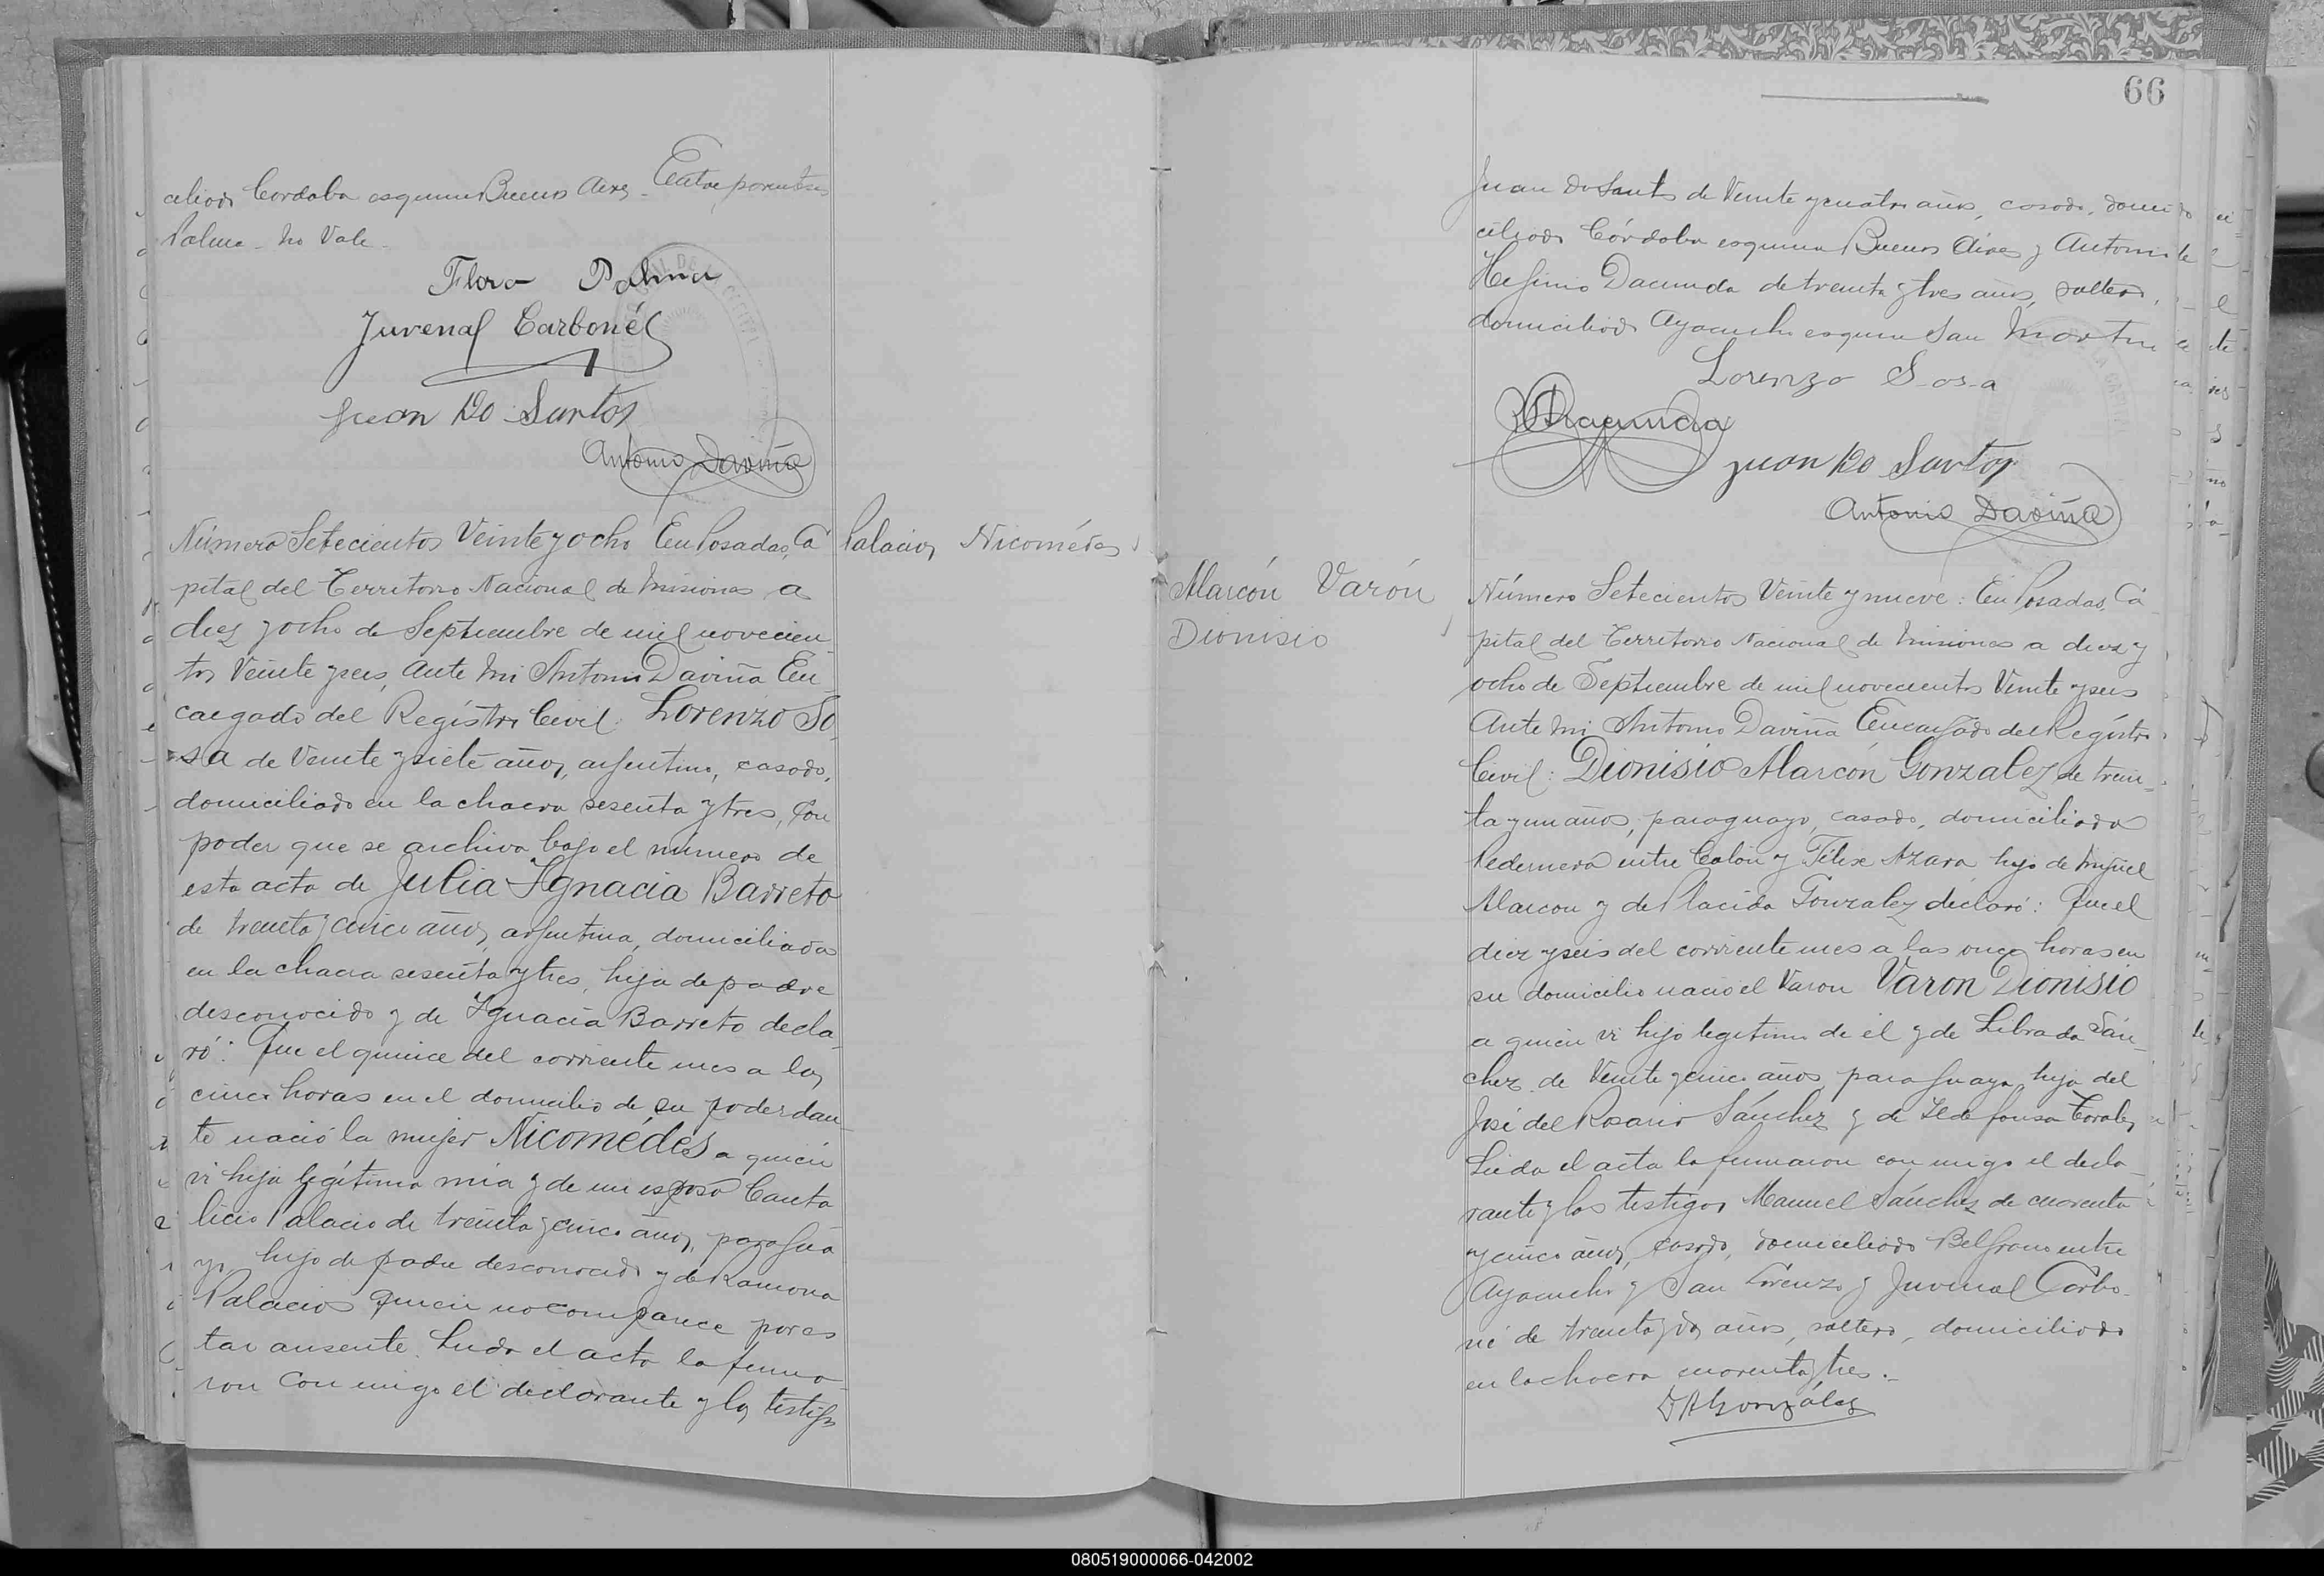 ciliado Cordoba esquina Buenos Aires - Entre parentesis
Palma - No Vale -
Flora Palma
Juvenal Carboné
Juan Do Santos
Antonio Daviña
Número Setecientos Veinte y ocho En Posadas, Ca
Palacios Nicomédes
pital del Territorio Nacional de Misiones a
diez y ocho de Septiembre de mil novecien
tos Veinte y seis, Ante Mi Antonio Daviña En
cargado del Registro Civil: Lorenzo So
sa de Veinte y siete años, argentino, casado,
domiciliado en la chacra sesenta y tres, con
poder que se archiva bajo el número de
esta acta de Julia Ignacia Barreto
de treinta y cinco años, argentina, domiciliada
en la chacra sesenta y tres, hija de padre
desconocido y de Ignacia Barreto decla
ró: Que el quince del corriente mes a las
cinco horas en el domicilio de su poderdan
te nació la mujer Nicomédes a quien
vi hija legítima mia y de mi esposo Canta
licio Palacio de treinta y cinco años, paragua
yo, hijo de padre desconocido y de Ramona
Palacios quien no comparece por es
tar ausente. Leida el acta la firma
ron con migo el declarante y los testigos
66
Juan Do Santos de Veinte y cuatro años, casado, domi
ciliado Córdoba esquina Buenos Aires y Antonio
Dacunda de treinta y tres años, soltero,
domiciliado Ayacucho esquina San Martin
Lorenzo Sosa
Dacunda
Juan Do Santos
Antonio Daviña
Alarcón Varón
Dionisio
Número Setecientos Veinte y nueve: En Posadas, Ca
pital del Territorio Nacional de Misiones a diez y
ocho de Septiembre de mil novecientos Veinte y seis
Ante Mi Antonio Daviña Encargado del Registro
Civil: Dionisio Alarcón Gonzalez de trein
ta y un años, paraguayo, casado, domiciliado
Pedernera entre Colón y Félix Azara, hijo de Miguel
Alarcon y de Placida Gonzalez declaró: Que el
diez y seis del corriente mes a las once horas en
su domicilio nació el Varon Varon Dionisio
a quien vi hijo legitimo de él y de Librada Sán
chez de Veinte y cinco años, paraguaya, hija del
José del Rosario Sánchez y de Ildefonsa Corales
Leida el acta la firmaron con migo el decla
rante y los testigos Manuel Sánchez de cuarenta
y cinco años, casado, domiciliado Belgrano entre
Ayacucho y San Lorenzo y Juvenal Carbo
né de treinta y dos años, soltero, domiciliado
en la chacra cuarenta y tres.-
D A Gonzáles
080519000066-042002